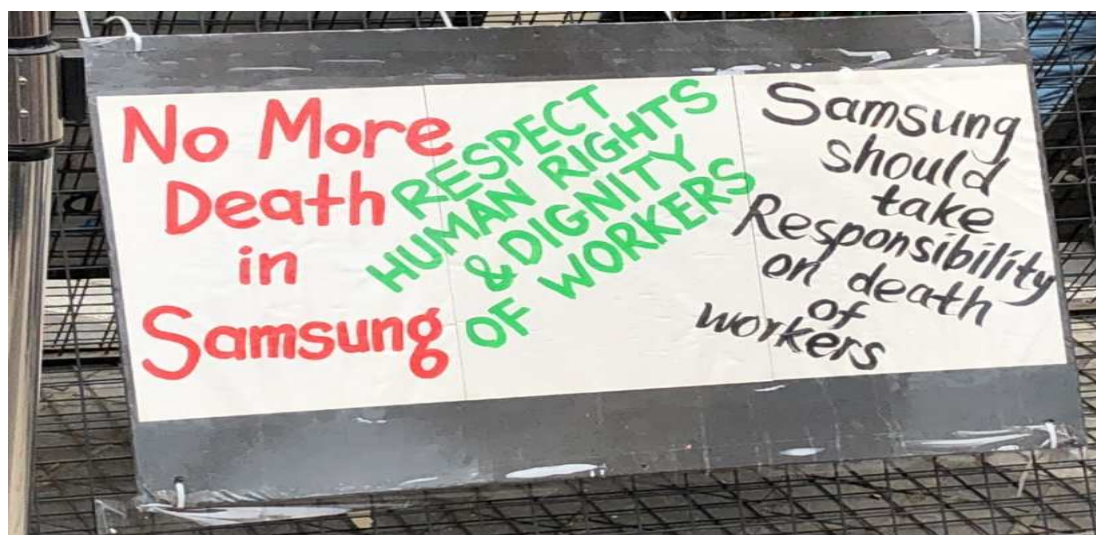 No More
Death
in
Samsung
RESPECT
HUMAN RIGHTS
& DIGNITY
OF WORKERS
Samsung
should
take
Responsibility
on death
of
workers